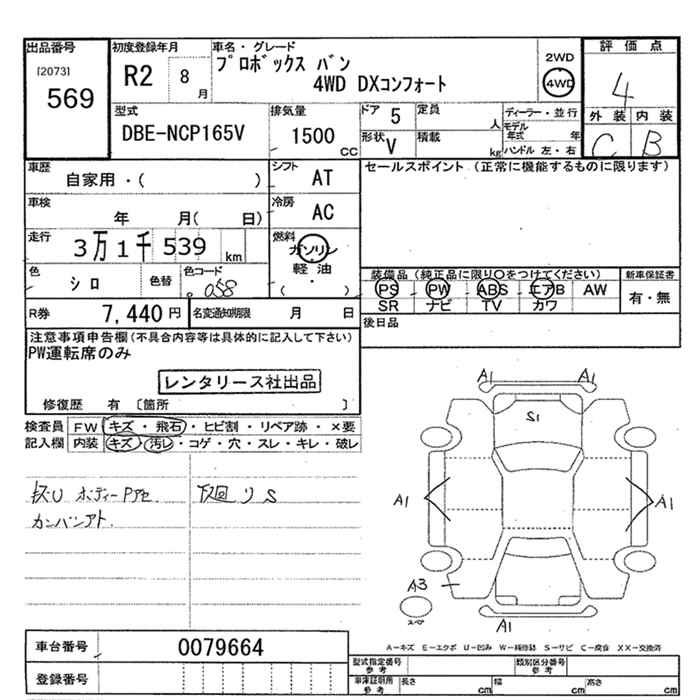 出品番号
[2073]
569
初度登録年月
R2 8月
車名・グレード
プロボックス バン
4WD DXコンフォート
2WD
4WD
評価点
4
外装 内装
C B
型式
DBE-NCP165V
排気量
1500 cc
ドア 5
定員 人
形状 V
積載 kg
ディーラー・並行
モデル年式 年
ハンドル 左・右
車歴
自家用・( )
シフト AT
セールスポイント (正常に機能するものに限ります)
車検
年 月( 日)
冷房 AC
走行
3万1千539 km
燃料
ガソリン
軽油
( ・ )
色
シロ
色替
色コード
058
装備品 (純正品に限り○をつけてください)
PS PW ABS エアB AW
SR ナビ TV カワ
新車保証書
有・無
R券 7,440円
名変通知期限 月 日
後日品
注意事項申告欄(不具合内容等は具体的に記入して下さい)
PW運転席のみ
レンタリース社出品
修復歴 有 〔箇所 〕
検査員 FW キズ・飛石・ヒビ割・リペア跡・×要
記入欄 内装 キズ・汚レ・コゲ・穴・スレ・キレ・破レ
ボディーPアセ
下回リS
カンバンアト.
A1 A1
S1
A1 A1
A3
スペア
A1
A-キズ E-エクボ U-凹み W-補修跡 S-サビ C-腐食 XX-交換済
車台番号 0079664
登録番号
型式指定番号 参考
類別区分番号 参考
車庫証明用 参考
長さ cm 幅 cm 高さ cm